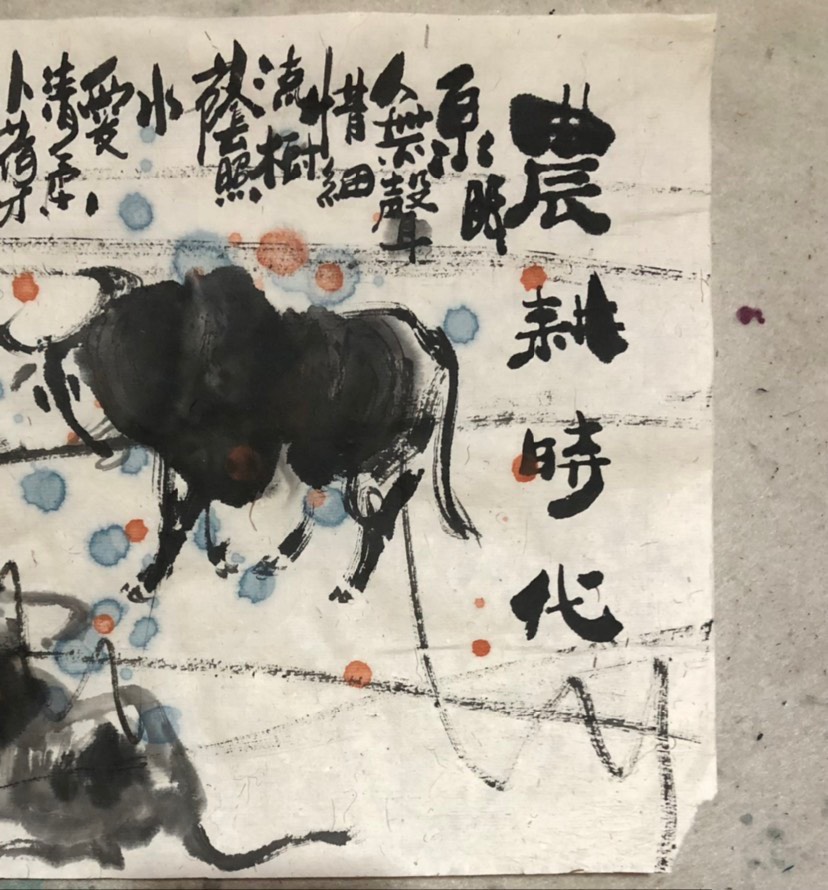 農耕時代
泉眼
無聲
惜細
流樹
蔭照
水
愛
晴柔
小荷才